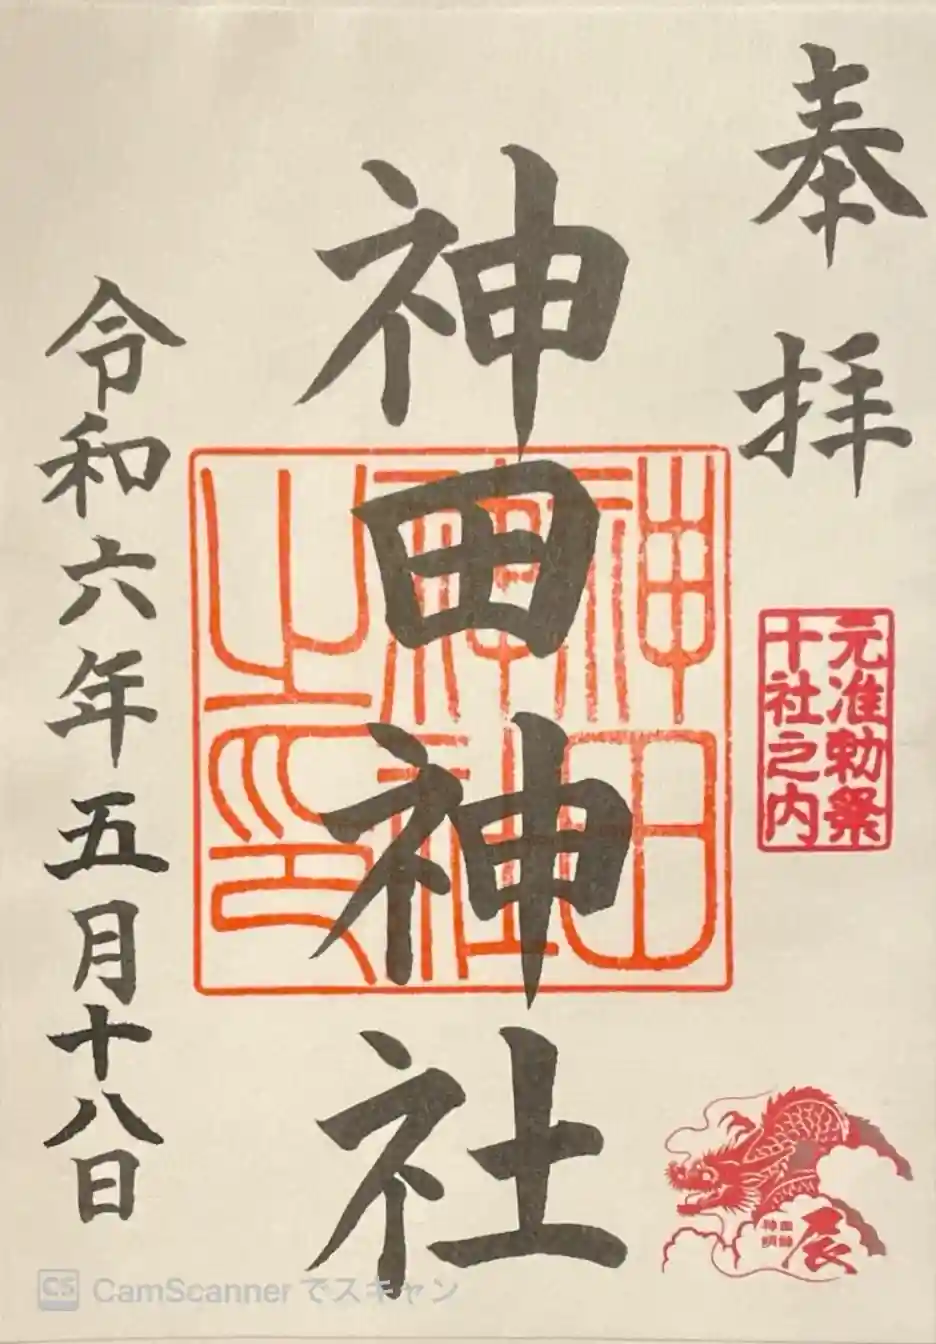 奉拝
元准勅祭
十社之内
神田神社
神田
神社
之印
令和六年五月十八日
辰
CS CamScanner でスキャン